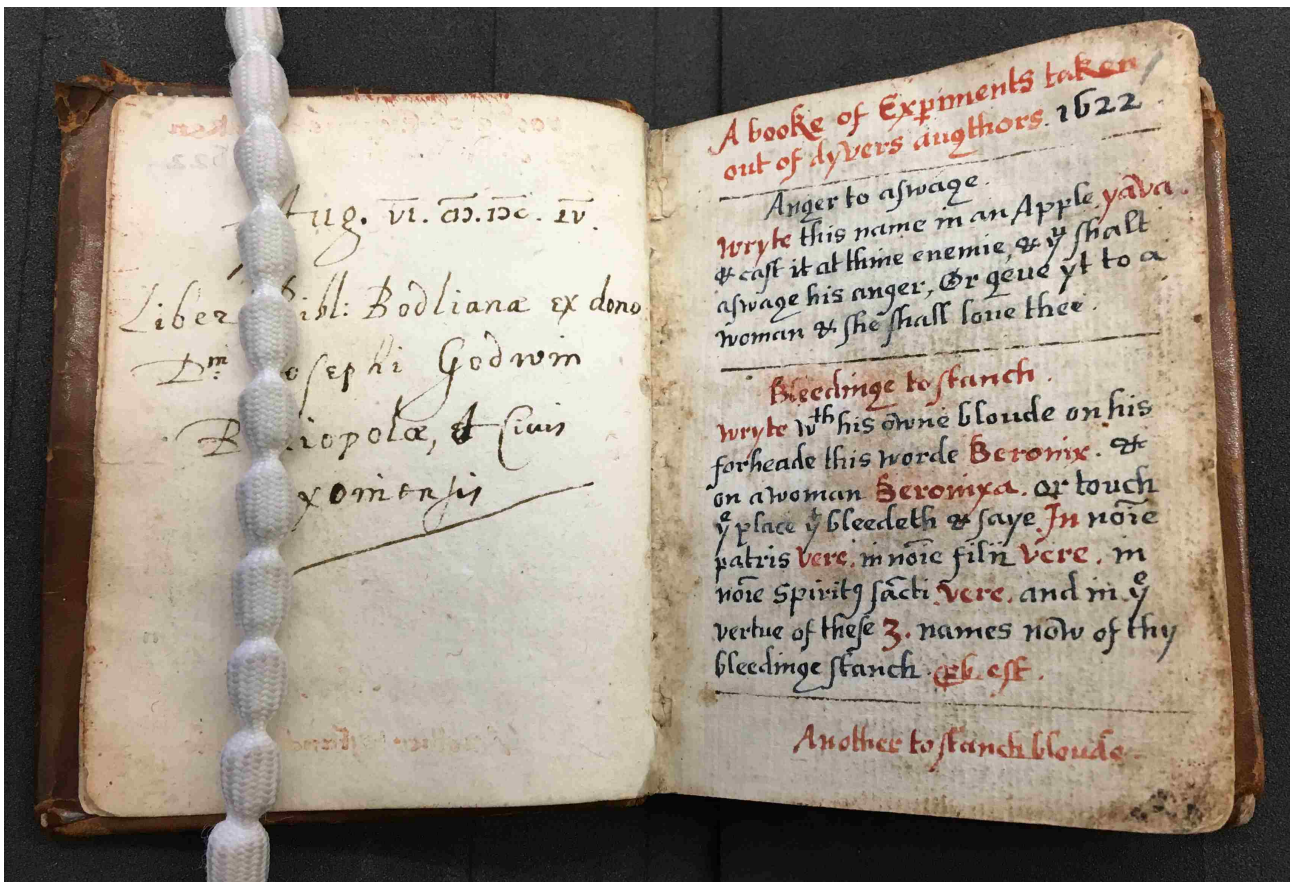 Aug. VI. MDC. IV.
Liber Bibl: Bodlianæ ex dono
Dm̄ Josephi Godwin
Bibliopolæ, et Civis
Oxoniensis
A booke of Expiments taken
out of dyvers augthors. 1622
Anger to aſwage.
Wryte this name in an Apple. yāva.
& caſt it at thine enemie, & yͧ ſhalt
aſwage his anger, Or geue yt to a
woman & ſhe ſhall loue thee.
Bleedinge to ſtanch.
Wryte wᵗʰ his owne bloude on his
forheade this worde Beronix. &
on a woman Beronixa. or touch
yᵉ place yᵗ bleedeth & ſaye. In noīe
patris vere. in noīe filii vere. in
noīe Spiritꝯ ſācti vere. and in yᵉ
vertue of theſe 3. names now of thy
bleedinge ſtanch. ꝓb. eſt.
Another to ſtanch bloude.